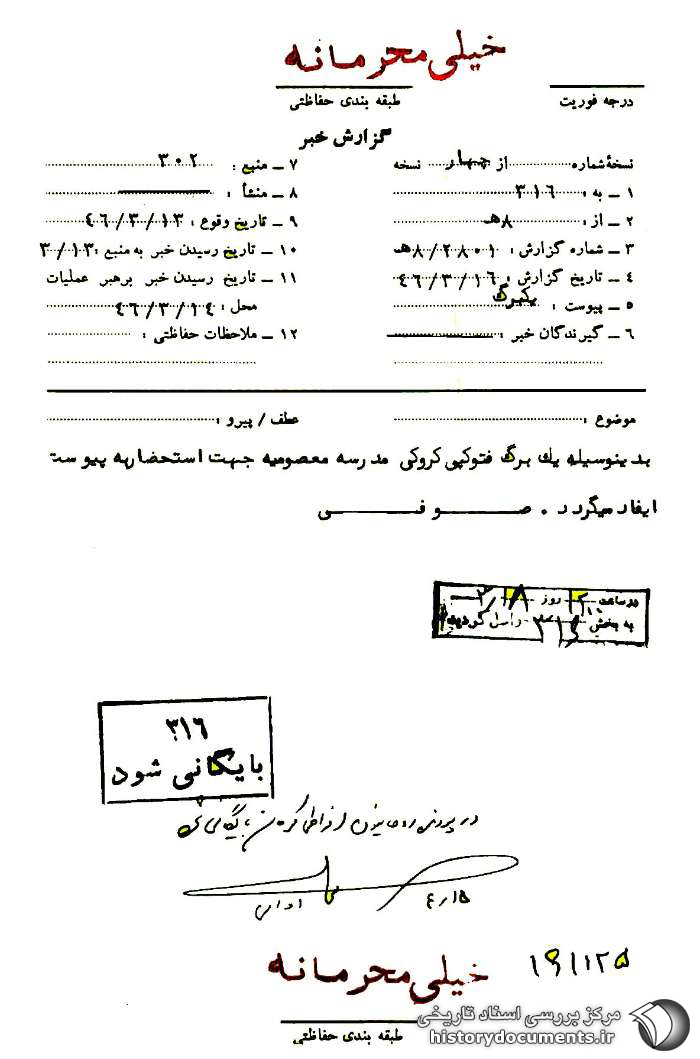 خیلی محرمانه
درجه فوریت
طبقه بندی حفاظتی
گزارش خبر
نسخهٔ شماره از چهار نسخه
۱ ــ به : ۳۱۶
۲ ــ از : ۸ هـ
۳ ــ شماره گزارش : ۲۸۰۱ / ۸ هـ
۴ ــ تاریخ گزارش : ۴۶/۳/۱۶
۵ ــ پیوست : یکبرگ
۶ ــ گیرندگان خبر :
۷ ــ منبع : ۳۰۲
۸ ــ منشأ :
۹ ــ تاریخ وقوع : ۴۶/۳/۱۳
۱۰ ــ تاریخ رسیدن خبر به منبع : ۳/۱۳
۱۱ ــ تاریخ رسیدن خبر برهبر عملیات
محل : ۴۶/۳/۱۴
۱۲ ــ ملاحظات حفاظتی :
موضوع :
عطف / پیرو :
بدینوسیله یك برگ فتوکپی کروکی مدرسه معصومیه جهت استحضار به پیوست
ایفاد میگردد . صوفی
در ساعت روز
به بخش ۳۱۶ واصل گردید
۳۱۶
بایگانی شود
در پرونده روحانیون افراطی کرمان بایگانی
خیلی محرمانه
۱۹۱۱۲۵
طبقه بندی حفاظتی
مرکز بررسی اسناد تاریخی
historydocuments.ir